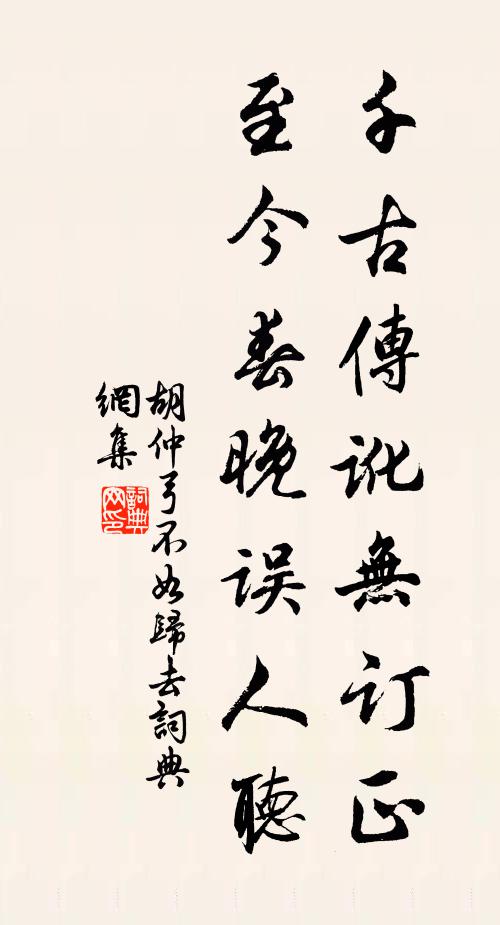 千古傳訛無訂正
至今春晚误人聽
胡仲弓不如歸去詞典
網集
詞典网印